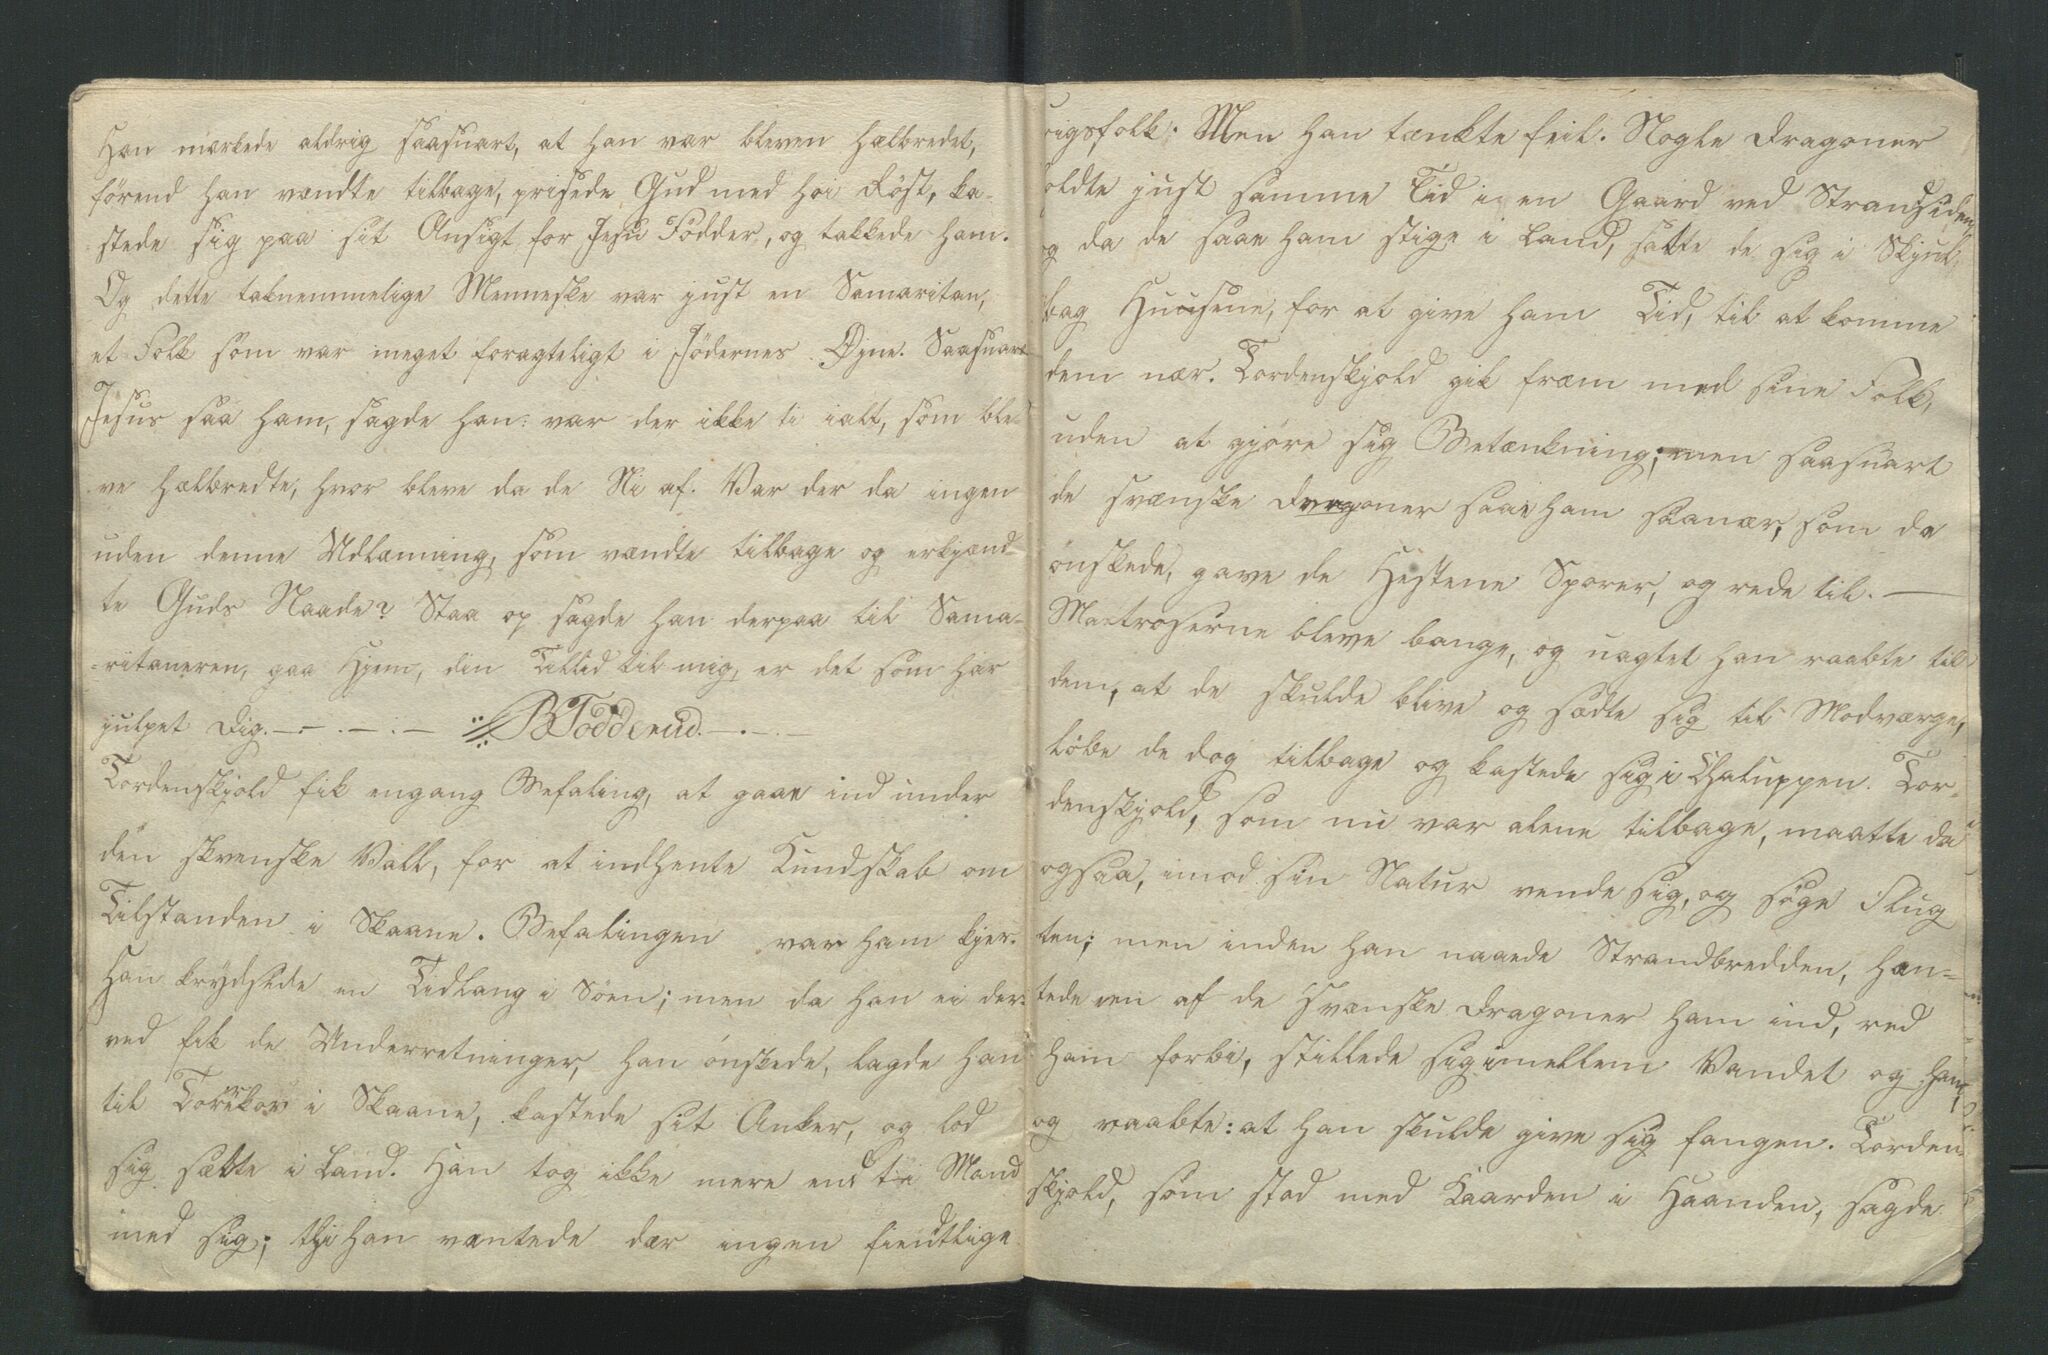 Han mærkede aldrig saasnart, at han var bleven hælbredet,
förend han vændte tilbage, prisede Gud med høi Röst, ka-
stede sig paa sit Ansigt for Jesu Födder, og takkede ham.
Og dette taknemmelige Menneske var just en Samaritan,
et Folk som var meget foragteligt i Jödernes Øyne. Saasnart
Jesus saa ham, sagde han: var der ikke ti ialt, som ble-
ve hælbredte, hvor bleve da de Ni af. Var der da ingen
uden denne Udlænning, som vændte tilbage og erkjænd-
te Guds Naade? Staa op sagde han derpaa til Sama-
-ritaneren, gaa Hjem, din Tillid til mig, er det som har
julpet dig. — . — . — . — B Todderud. — . —
Tordenskjold fik engang Befaling, at gaae ind under
den skvenske Vall, for at indhente Kundskab om
Tilstanden i Skaane. Befalingen var ham kjer.
Han krydsede en Tidlang i Söen; men da han ei der-
ved fik de Underretninger, han ønskede, lagde han
til Torekov i Skaane, kastede sit Anker, og lod
sig sætte i Land. Han tog ikke mere end ti Mand
med sig; thi han væntede dær ingen fiendtlige
rigsfolk. Men han tænkte feil. Nogle Dragoner
oldte just samme Tid i en Gaard ved Strandsiden,
og da de saae ham stige i Land, satte de sig i Skjul
bag Huusene, for at give ham Tid, til at komme
dem nær. Tordenskjold gik fræm med sine Folk,
uden at gjöre sig Betænkning; men saasnart
de svænske Dragoner saae ham saanær, som de
önskede, gave de Hestene Sporer, og rede til. —
Matroserne bleve bange, og uagtet han raabte til
dem, at de skulde blive og sædte sig til Modværge,
löbe de dog tilbage og kastede sig i Chaluppen. Tor-
denskjold, som nu var alene tilbage, maatte da
ogsaa, imod sin Natur vende sig, og söge Flug
ten; men inden han naaede Strandbredden, hen-
tede een af de Svænske Dragoner ham ind, red
ham forbi, stillede sig imellem Vandet og ham,
og raabte: at han skulde give sig fangen. Torden-
skjold, som stod med Kaarden i Haanden, sagde